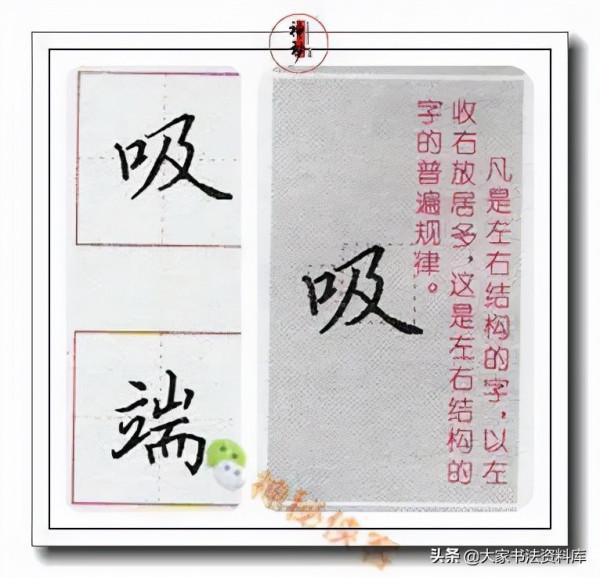 吸
端
吸
凡是左右结构的字，以左
收右放居多，这是左右结构的
字的普遍规律。
神秘侠客
头条 @大家书法资料库